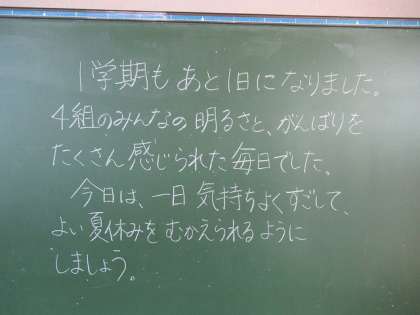 1学期も あと1日に なりました。
4組のみんなの 明るさと、がんばりを
たくさん 感じられた 毎日でした。
今日は、一日 気持ちよく すごして、
よい 夏休みを むかえられるように
しましょう。